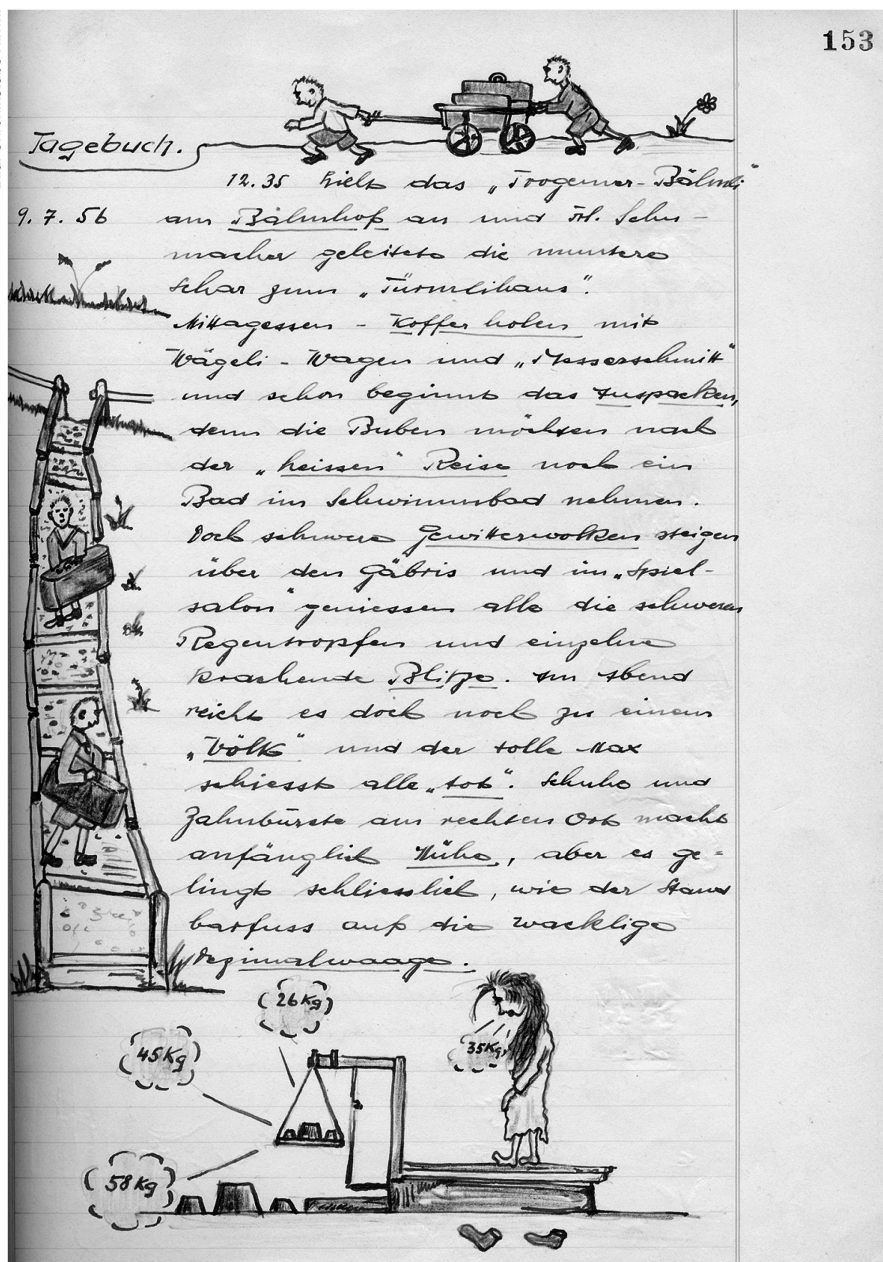 153
Tagebuch.
12.35 hielt das „Trogener-Bähnli“
9. 7. 56 am Bahnhof an und Frl. Schu-
macher geleitete die muntere
Schar zum „Türmlihaus“.
Mittagessen - Koffer holen mit
Wägeli - Wagen und „Messerschmitt“
und schon beginnt das Auspacken,
denn die Buben möchten nach
der „heissen“ Reise noch ein
Bad im Schwimmbad nehmen.
Doch schwere Gewitterwolken steigen
über den Gäbris und im „Spiel-
salon“ geniessen alle die schweren
Regentropfen und einzelne
krachende Blitze. Am Abend
reicht es doch noch zu einem
„Völk“ und der tolle Max
schiesst alle „tot“. Schuhe und
Zahnbürste am rechten Ort macht
anfänglich Mühe, aber es ge-
lingt schliesslich, wie der Stand
barfuss auf die wacklige
Dezimalwaage.
26 Kg
45 Kg
35 Kg
58 Kg